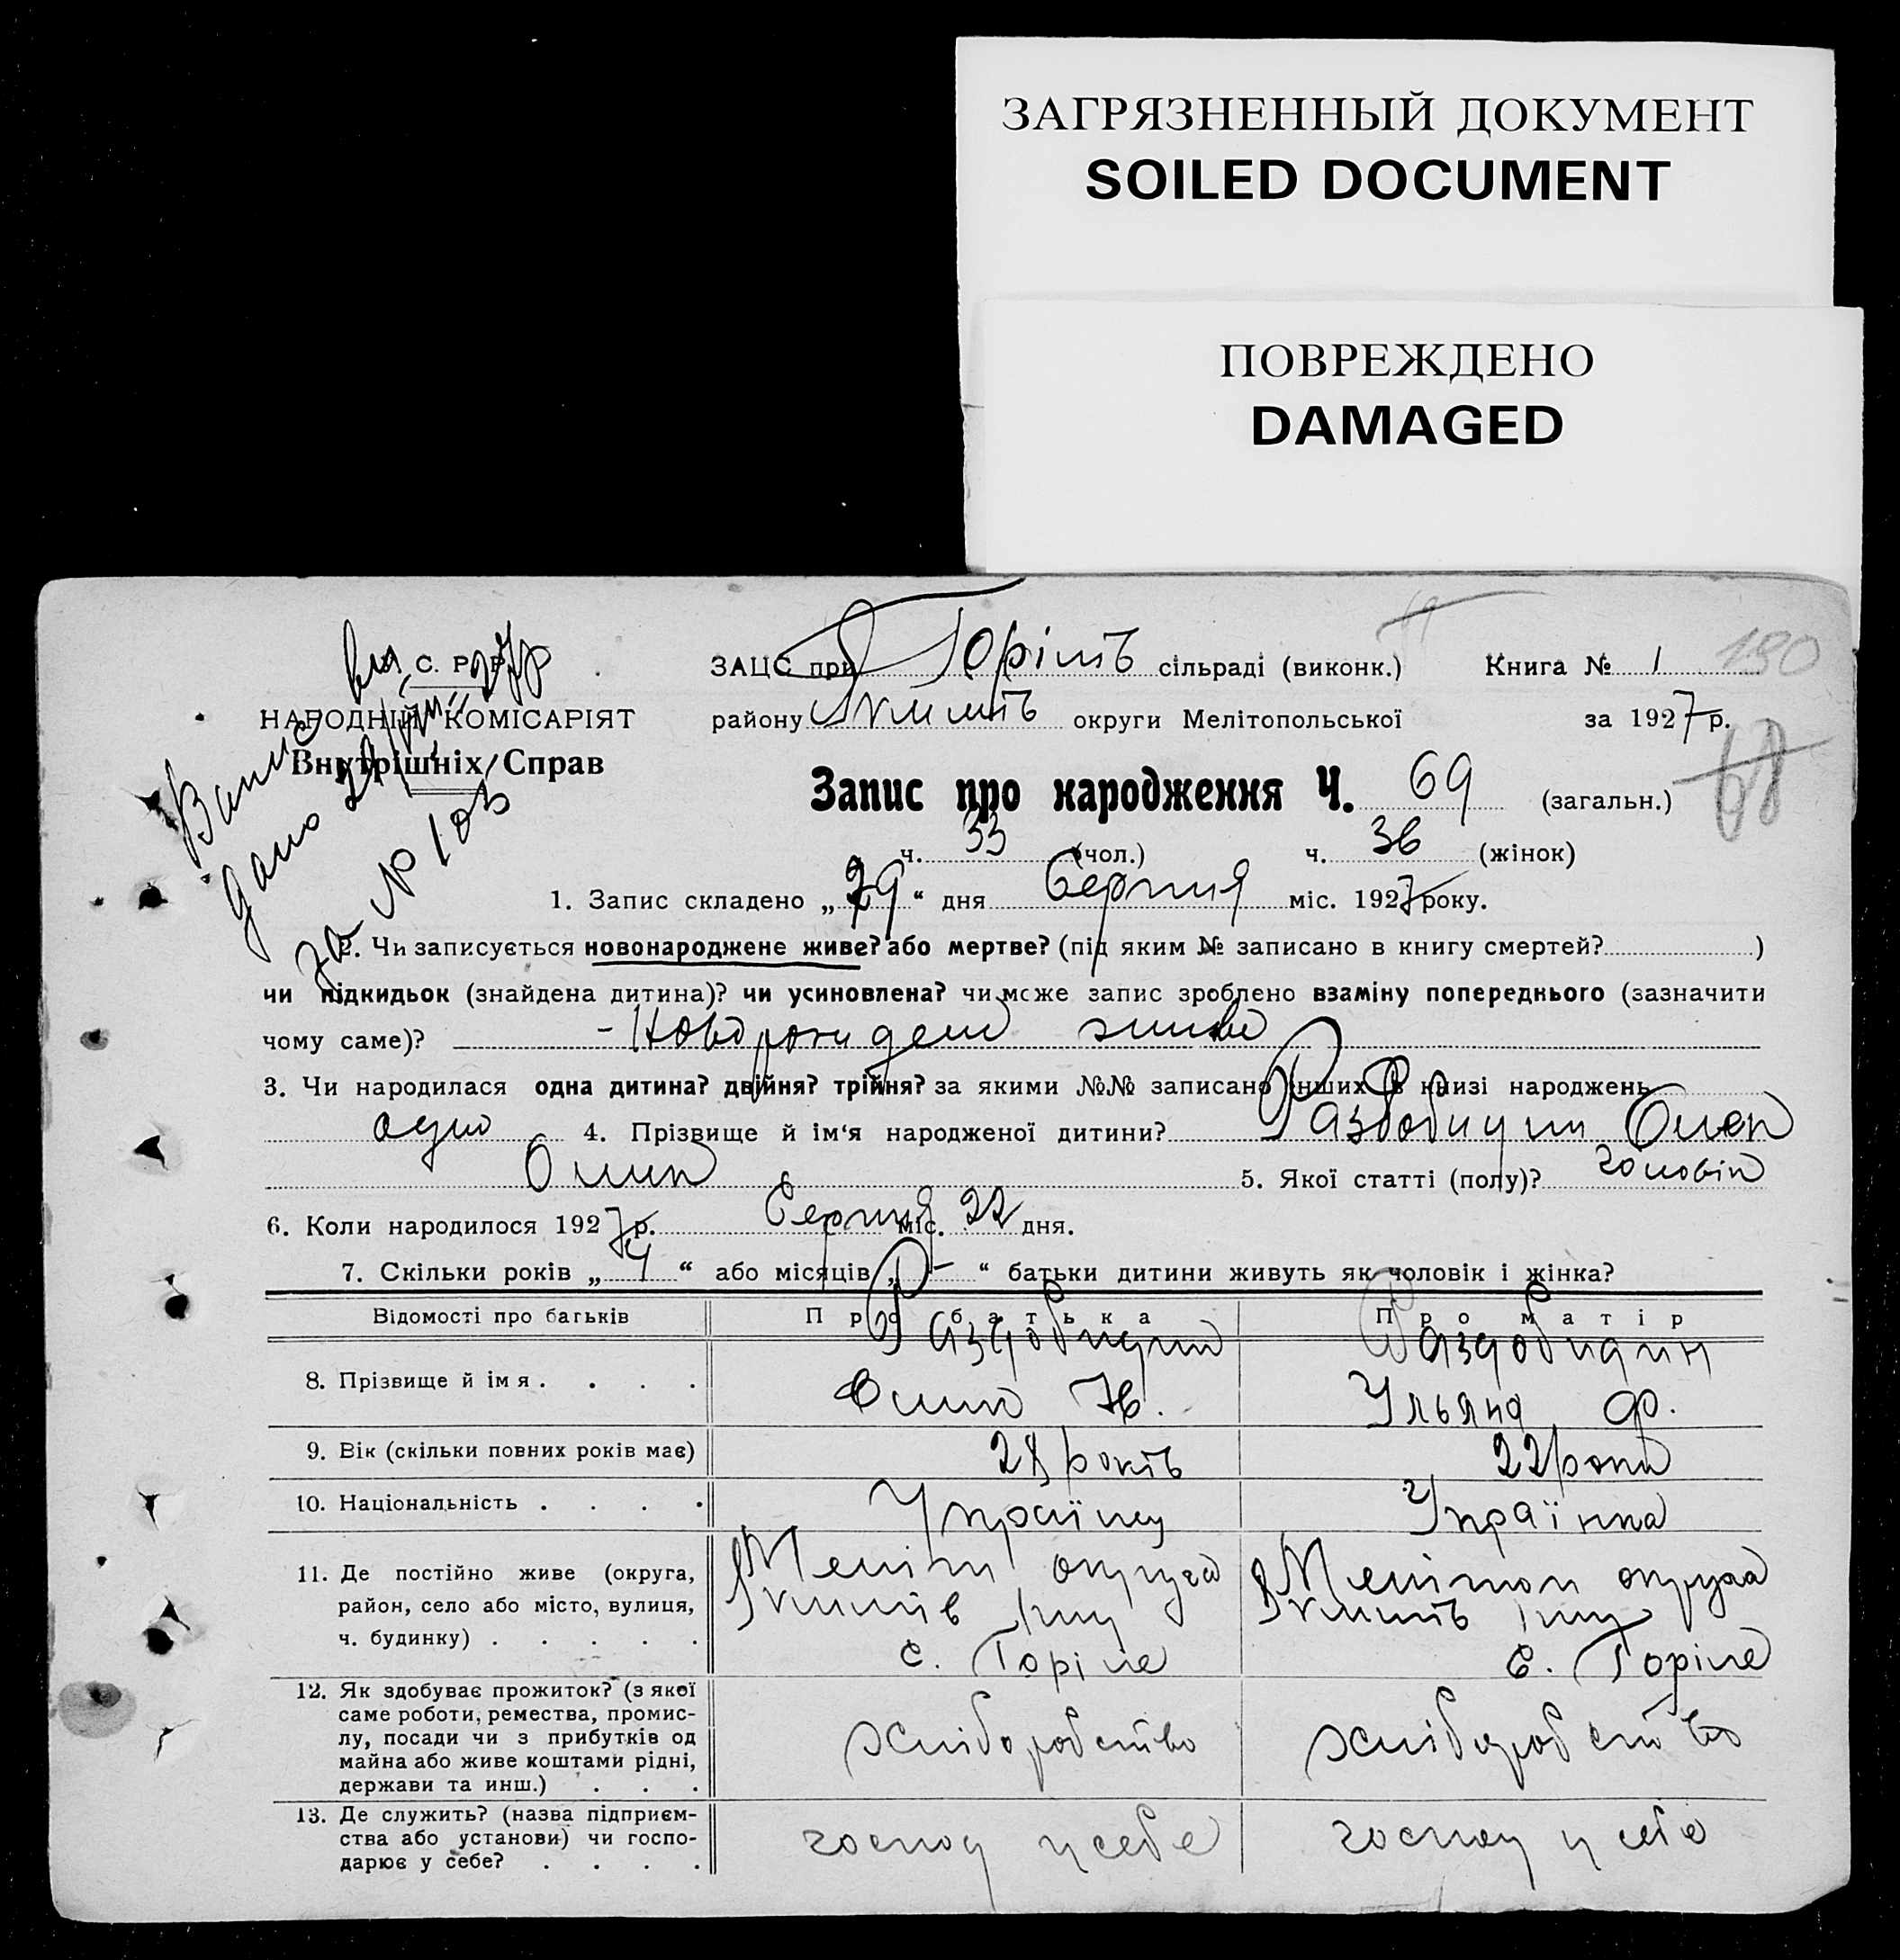 ЗАГРЯЗНЕННЫЙ ДОКУМЕНТ
SOILED DOCUMENT
ПОВРЕЖДЕНО
DAMAGED
С. Р. Р.
НАРОДНІЙ КОМІСАРІЯТ
Внутрішніх Справ
дано
за № 103
ЗАЦС при Горілів сільраді (виконк.) Книга № 1 190
району Якимів округи Мелітопольської за 1927 р.
68
Запис про народження Ч. 69 (загальн.)
ч. 33 (чол.) ч. 36 (жінок)
1. Запис складено „29“ дня Серпня міс. 1927 року.
2. Чи записується новонароджене живе? або мертве? (під яким № записано в книгу смертей? )
чи підкидьок (знайдена дитина)? чи усиновлена? чи може запис зроблено взаміну попереднього (зазначити
чому саме)? – живе
3. Чи народилася одна дитина? двійня? трійня? за якими №№ записано інших в книзі народжень
одно 4. Прізвище й ім‘я народженої дитини?
5. Якої статті (полу)? чоловік
6. Коли народилося 1927 р. Серпня міс. 22 дня.
7. Скільки років „4“ або місяців „-“ батьки дитини живуть як чоловік і жінка?
Відомості про батьків Про батька Про матір
8. Прізвище й імя . . . .
Ульяна Ф.
9. Вік (скільки повних років має) 28 років 22 роки
10. Національність . . . . Українец Українка
11. Де постійно живе (округа, район, село або місто, вулиця, ч. будинку) . . . . .
Меліт округа Мелітоп округа
Якимів Якимів
с. Горіле с. Горіле
12. Як здобуває прожиток? (з якої саме роботи, ремества, промислу, посади чи з прибутків од майна або живе коштами рідні, держави та инш.) . . .
хліборобство хліборобство
13. Де служить? (назва підприємства або установи) чи господарює у себе? . . . .
господ у себе господ у себе